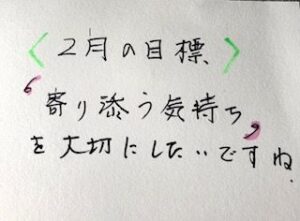 〈2月の目標〉
“寄り添う気持ち„
を大切にしたいですね